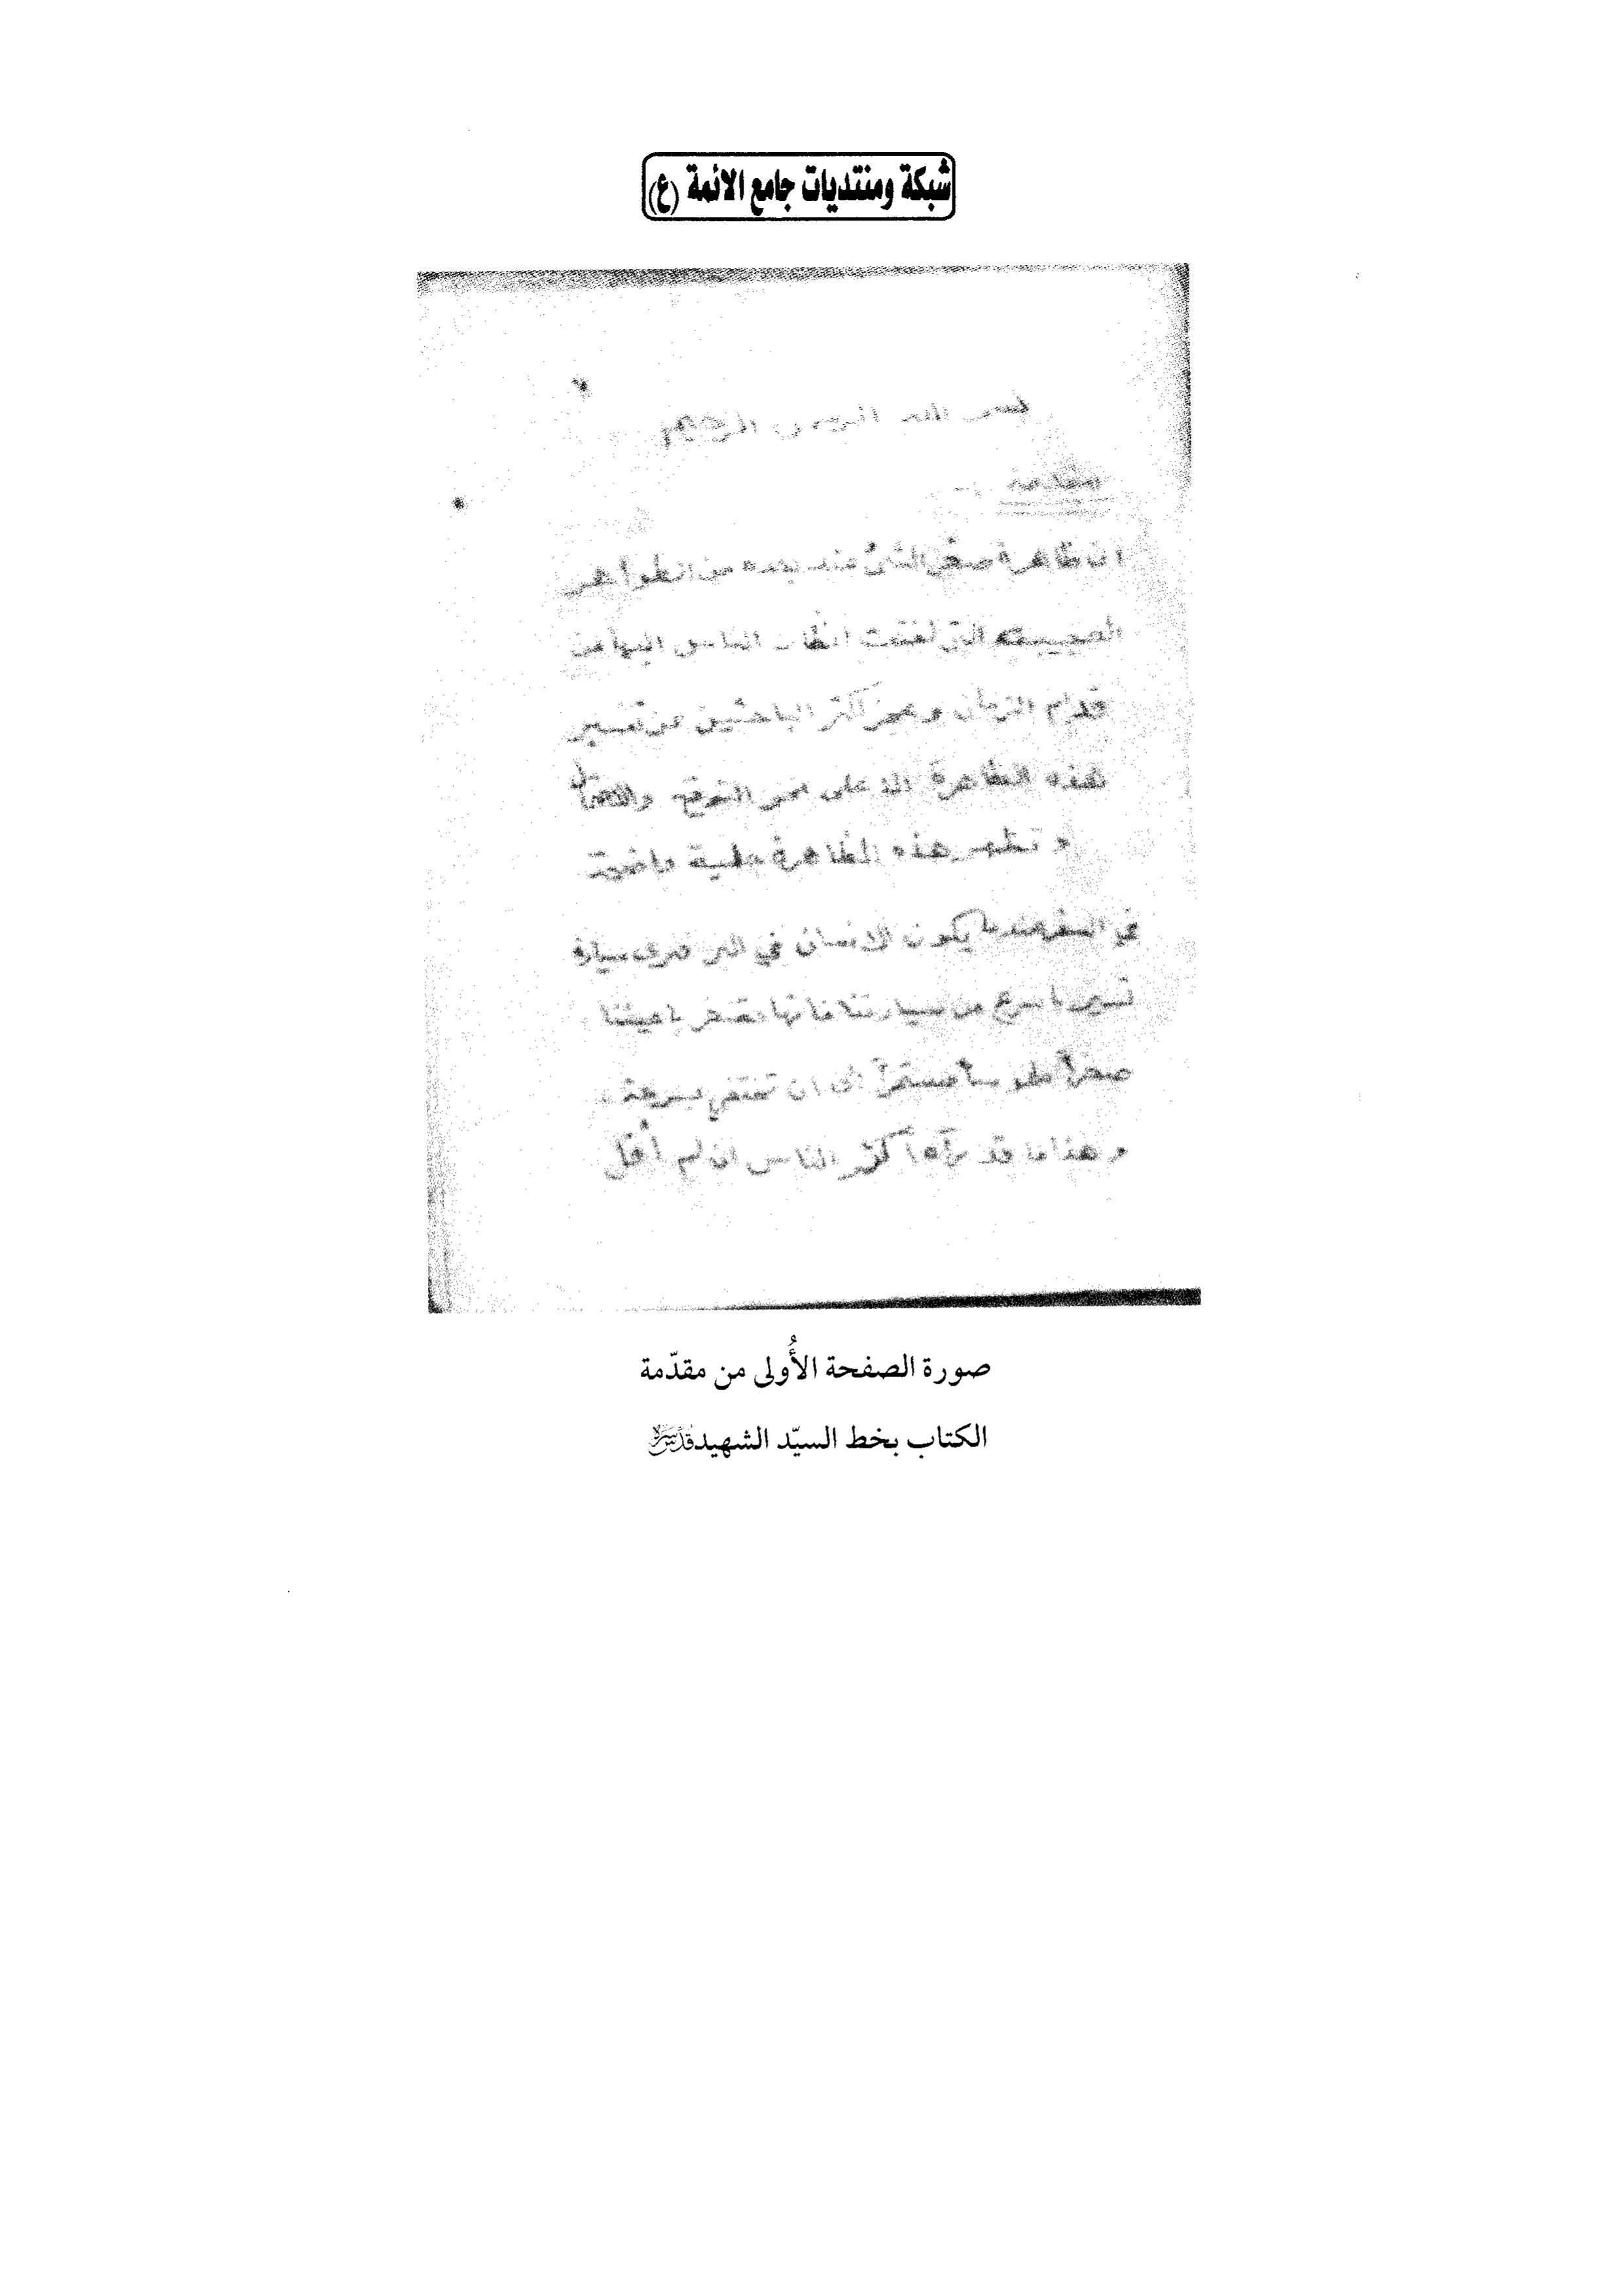 شبكة ومنتديات جامع الائمة (ع)
بسم الله الرحمن الرحيم
مقدمة
ان ظاهرة صغر الشئ عند بعده من الظواهر
العجيبة التي لفتت انظار الناس اليها من
قديم الزمان وعجز اكثر الباحثين عن تفسير
هذه الظاهرة الا على نحو التوقع
و تظهر هذه الظاهرة جلية واضحة
في السفر عندما يكون الانسان في البر فيرى سيارة
تسير باسرع من سيارتنا فانها تصغر باعيننا
صغراً ملموساً مستمراً الى ان تختفي بسرعة
و هذا ما قد يرآه أكثر الناس ان لم أقل
صورة الصفحة الأُولى من مقدّمة
الكتاب بخط السيّد الشهيد